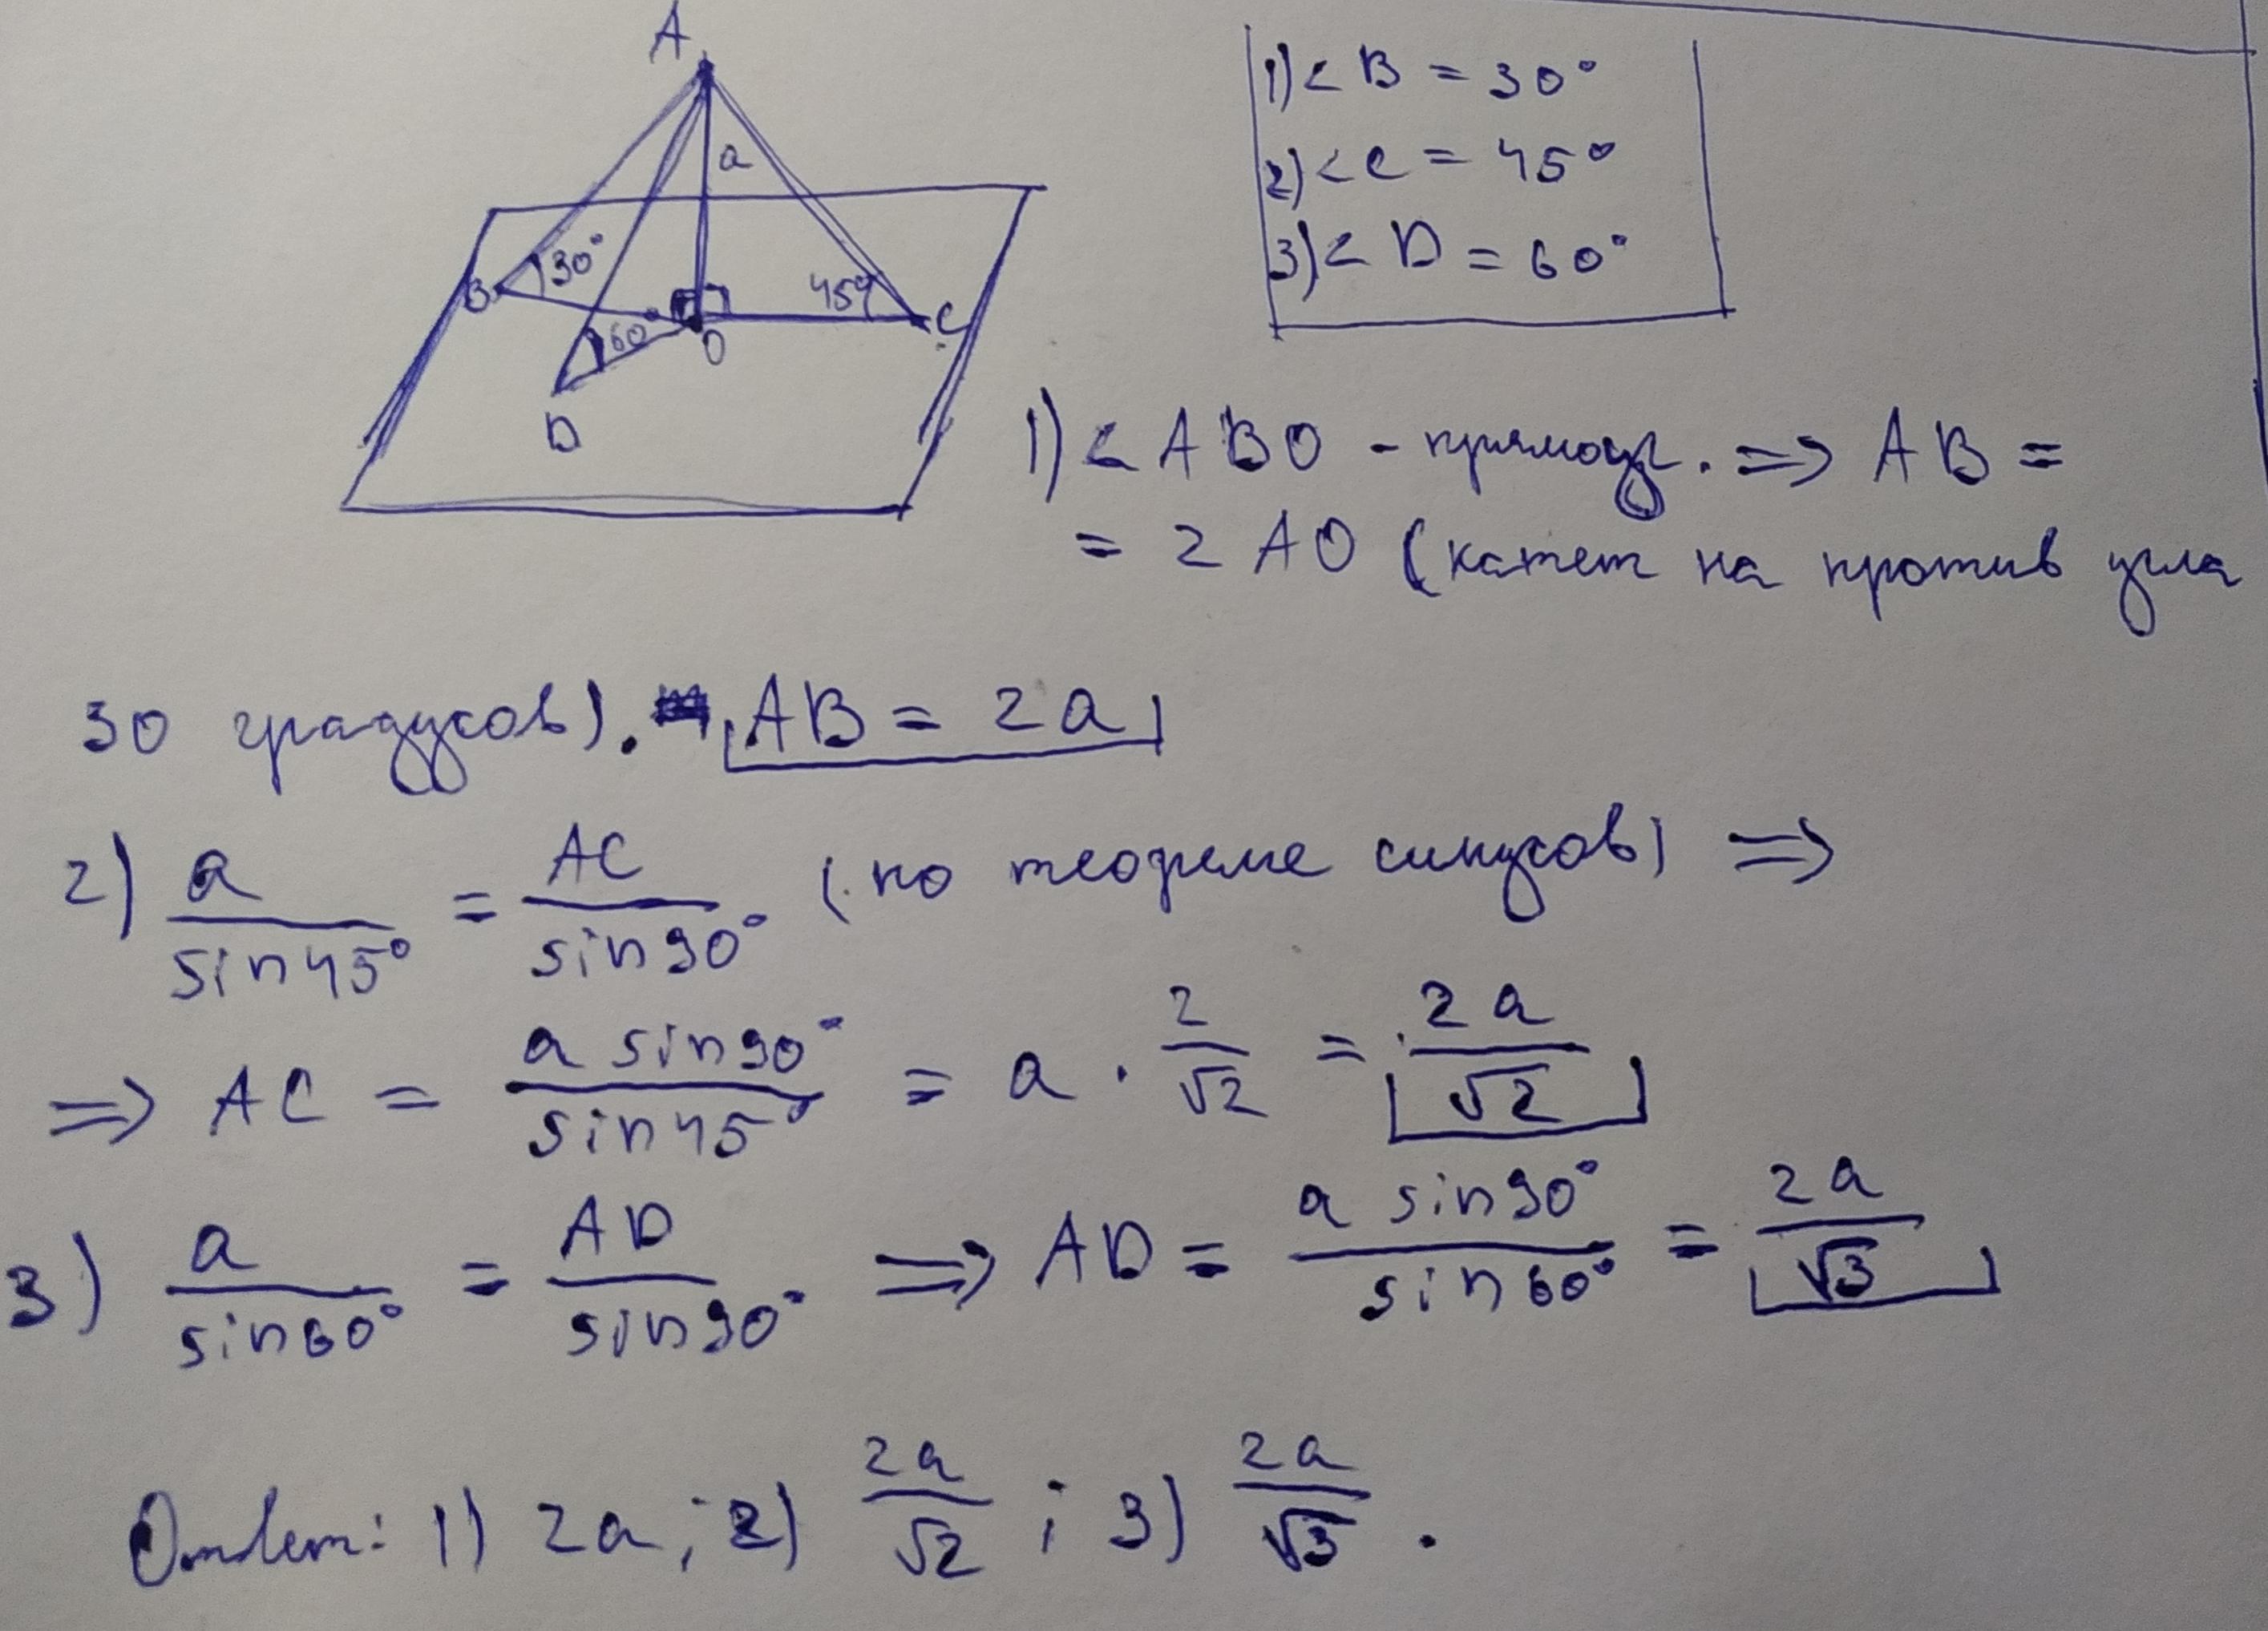 A
a
B
30°
45°
60°
O
C
D
1) < B = 30°
2) < C = 45°
3) < D = 60°
1) < ABO - прямоуг. => AB =
= 2 AO (катет на против угла
30 градусов). AB = 2a
2) a/sin45° = AC/sin90° (по теореме синусов) =>
=> AC = a sin90°/sin45° = a · 2/√2 = 2a/√2
3) a/sin60° = AD/sin90° => AD = a sin90°/sin60° = 2a/√3
Ответ: 1) 2a; 2) 2a/√2 ; 3) 2a/√3 .